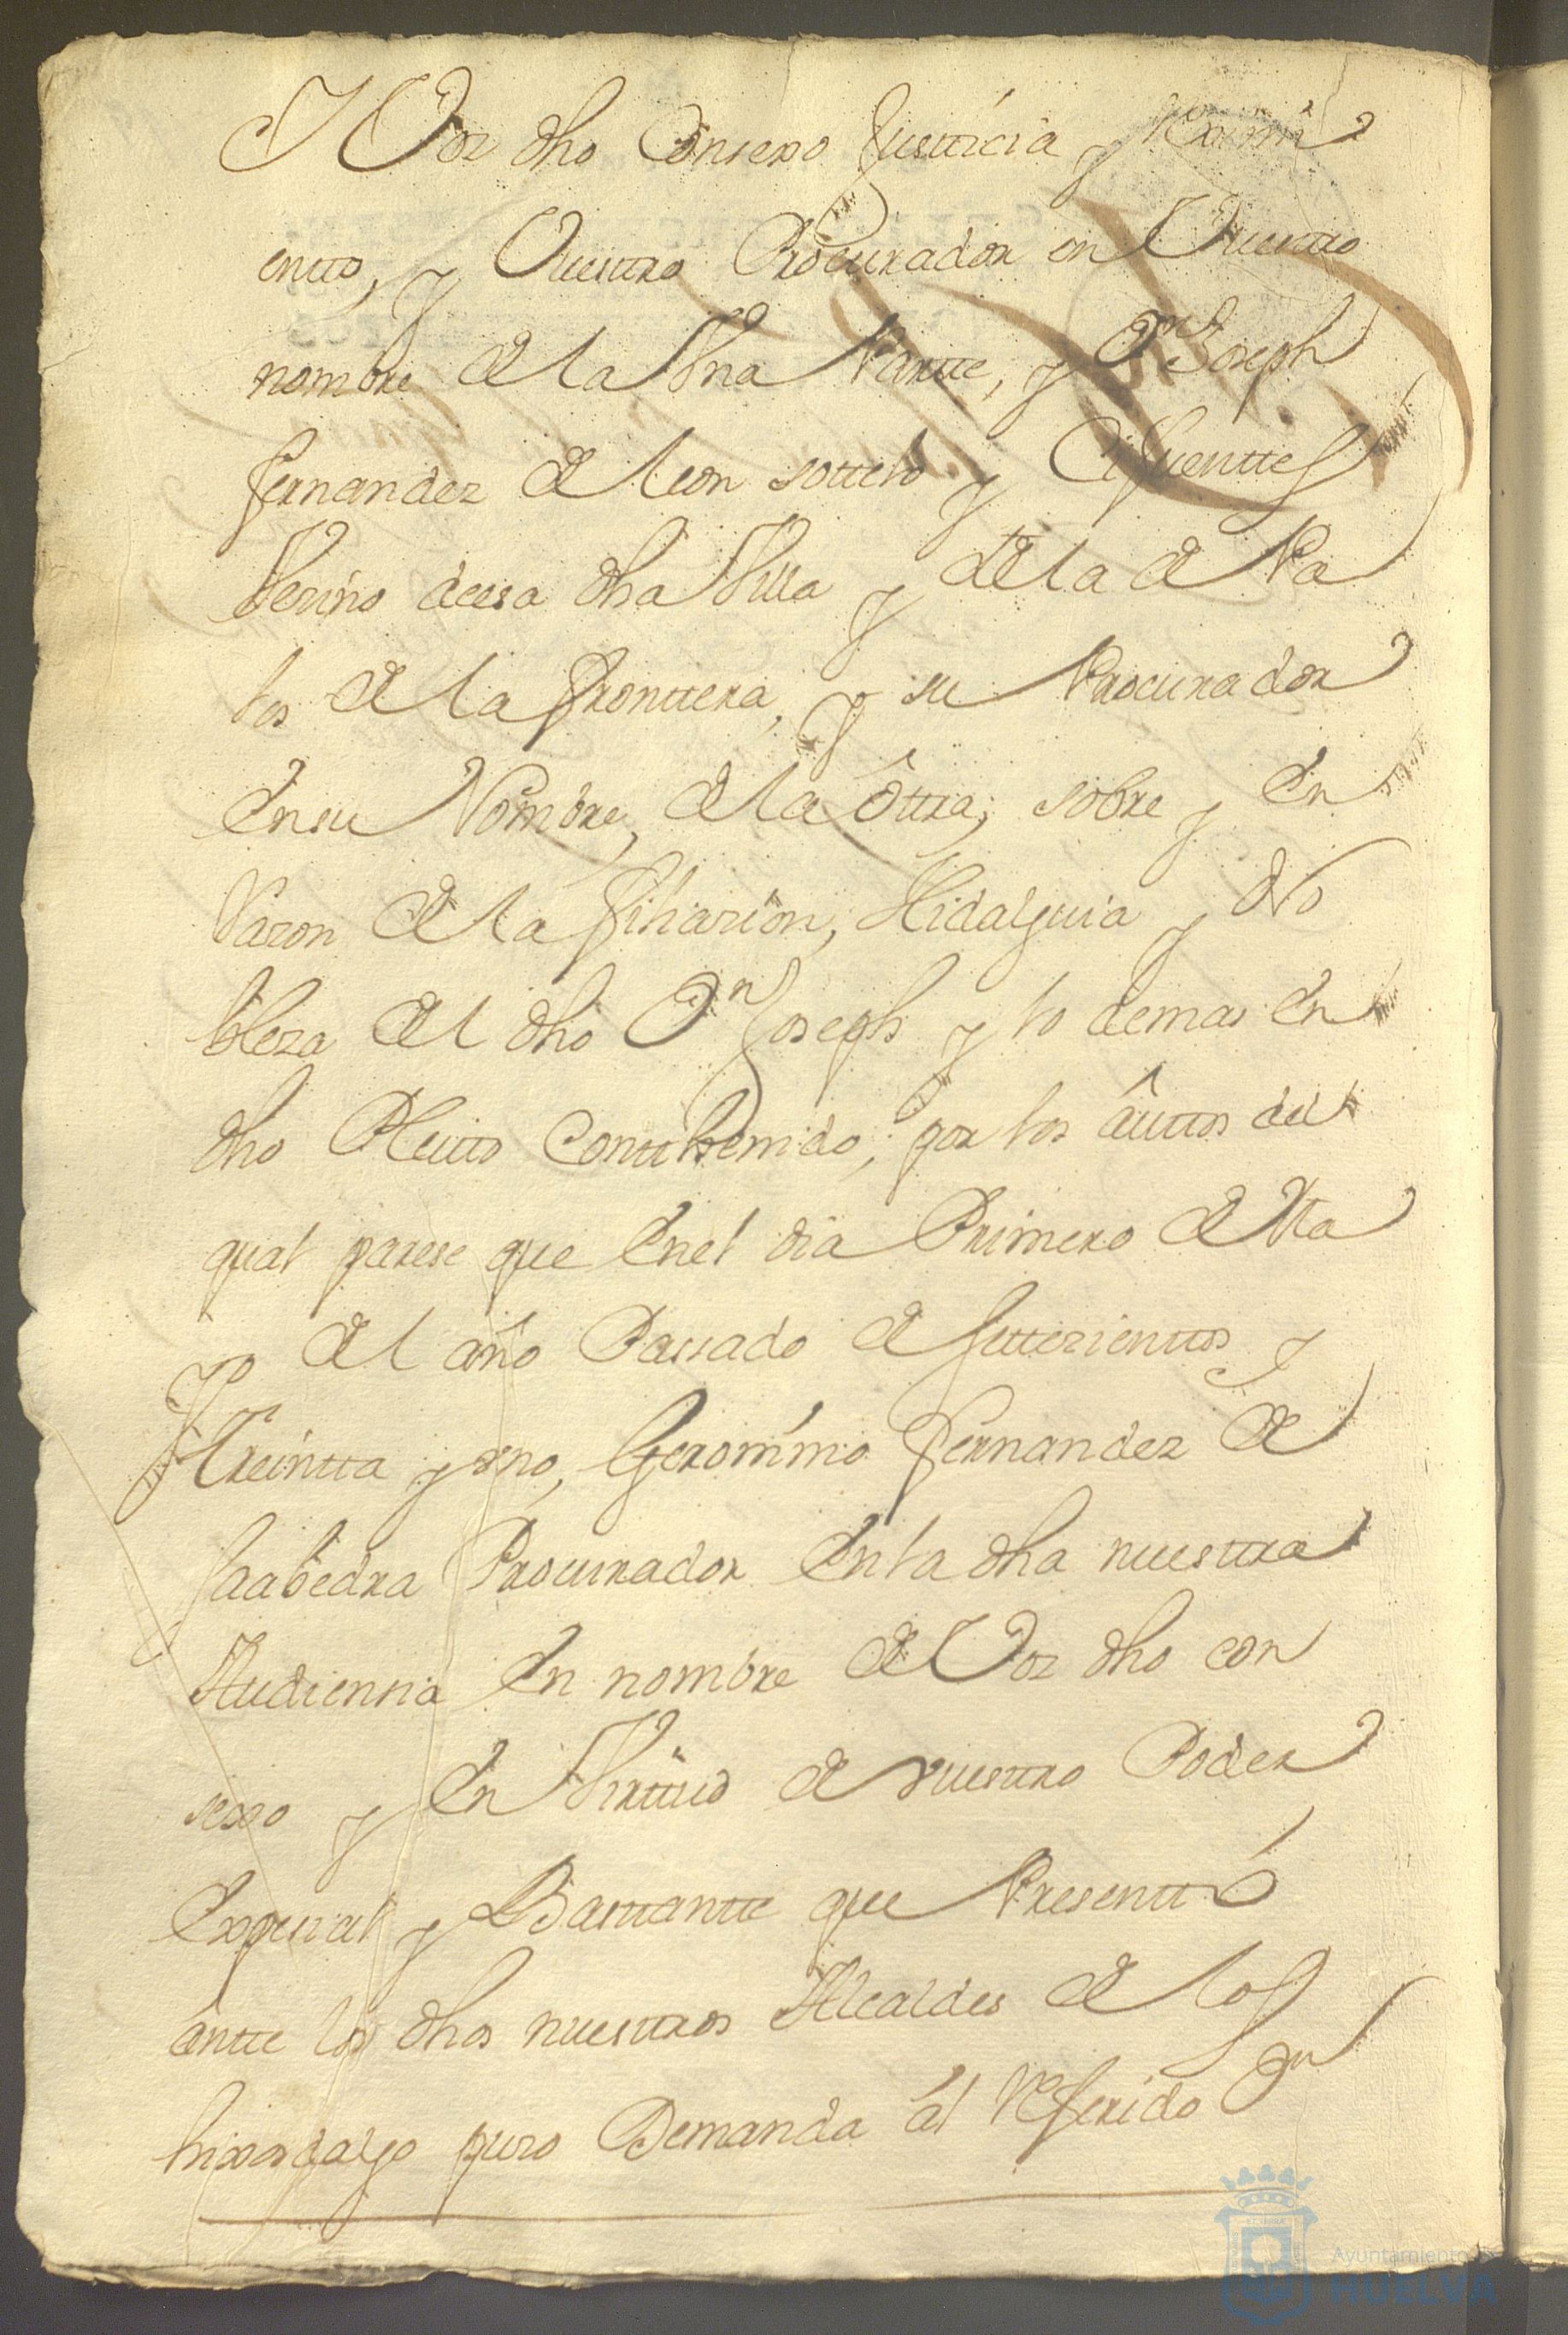 Y Vos dho Consexo Justticia y Reximi
entto, y Vuestro Procurador en Vuestro
nombre de la Vna Partte, y Dn Joseph
fernandez de leon sottelo y Cifuenttes
Vezino deesa dha Villa y de la de Pa
los de la fronttera, y su Procurador
En su Nombre, de la ôttra; sobre y En
Razon de la filiazion, Hidalguia y No
bleza del dho Dn Joseph y lo demas En
dho Pleitto Contthenido; por los âuttos del
qual parese que Enel dia Primero de Ma
yo del año Passado de settezienttos y
Treintta y vno, Geronimo fernandez de
saabedra Procurador En la dha nuestra
Audiensia En nombre de Vos dho con
sexo y En Virttud de vuestro Poder
Expecial y Basttantte que Presenttó
ântte los dhos nuestros Alcaldes de los
hixosdalgo puso Demanda âl Referido Dn
Ayuntamiento de
HUELVA